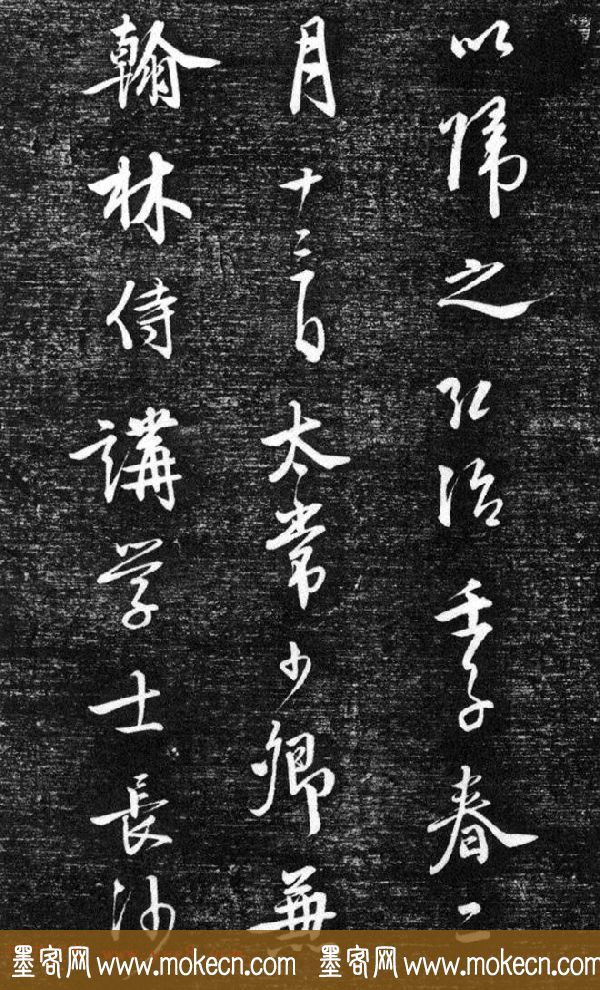 以歸之弘治壬子春二
月十三日太常少卿兼
翰林侍講学士長沙
墨客网 www.mokecn.com 墨客网 www.mokecn.com